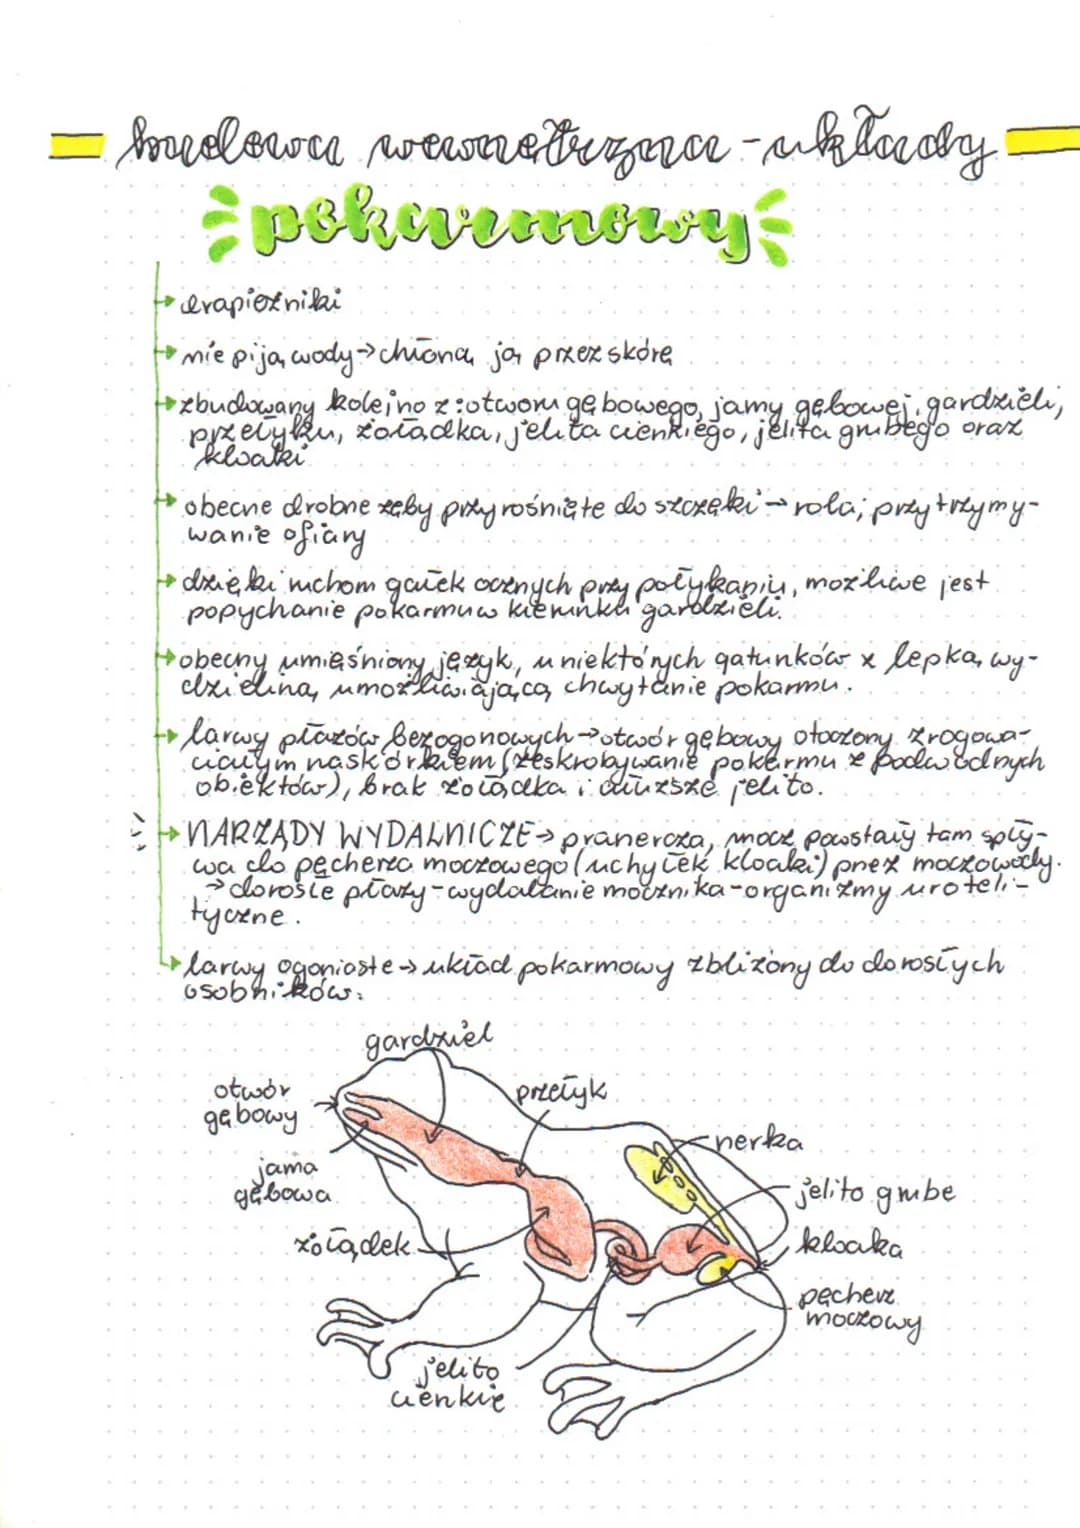 budowa wewnętrzna - układy
pokarmowy
drapieżniki
nie piją wody → chłoną ją przez skórę
zbudowany kolejno z: otworu gębowego, jamy gębowej, gardzieli,
przełyku, żołądka, jelita cienkiego, jelita grubego oraz
kloaki
obecne drobne zęby przyrośnięte do szczęki → rola; przytrzymy-
wanie ofiary
dzięki ruchom gałek ocznych przy połykaniu, możliwe jest
popychanie pokarmu w kierunku gardzieli.
obecny umięśniony język, u niektórych gatunków z lepką wy-
dzieliną umożliwiającą chwytanie pokarmu.
larwy płazów bezogonowych → otwór gębowy otoczony zrogowa-
ciałym naskórkiem (zeskrobywanie pokarmu z podwodnych
obiektów), brak żołądka i dłuższe jelito.
NARZĄDY WYDALNICZE → pranercza, mocz powstały tam spły-
wa do pęcherza moczowego (uchyłek kloaki) przez moczowody.
→ dorosłe płazy - wydalanie mocznika - organizmy uroteli-
tyczne.
larwy ogoniaste → układ pokarmowy zbliżony do dorosłych
osobników.
gardziel
otwór
gębowy
przełyk
nerka
jama
gębowa
jelito grube
żołądek
kloaka
pęcherz
moczowy
jelito
cienkie